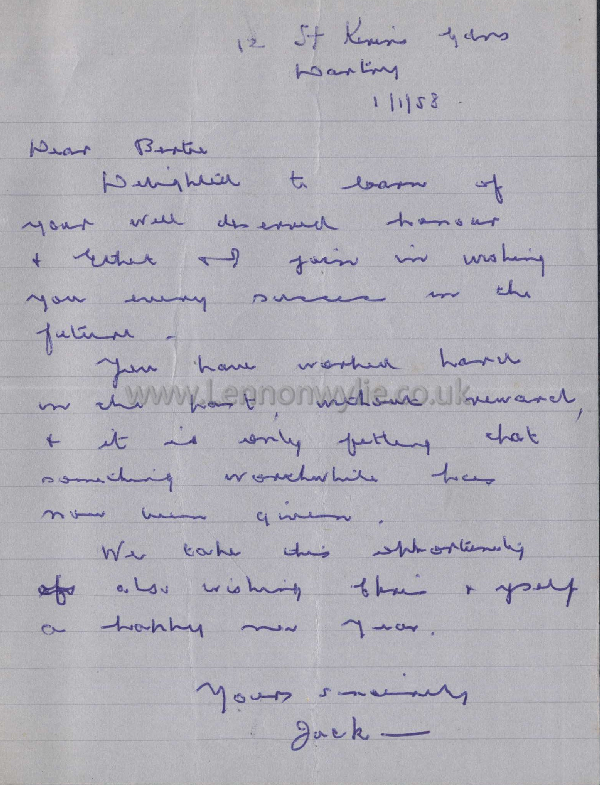 12 St Kevin's Gdns
Dartry
1/1/58.
Dear Bertie
Delighted to learn of
your well deserved honour
& Ethel & I join in wishing
you every success in the
future.
You have worked hard
www.Lennonwylie.co.uk
in the past, without reward,
& it is only fitting that
something worthwhile has
now been given.
We take this opportunity
also wishing & yself
a happy new year.
Yours sincerely
Jack